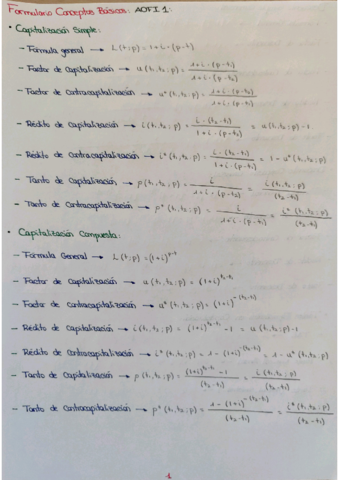 Formulario Conceptos Básicos: AOFI 1:
• Capitalización Simple:
– Fórmula general → L(t;p) = 1+i·(p-t)
– Factor de Capitalización → u(t₁,t₂;p) = (1+i·(p-t₁))/(1+i·(p-t₂))
– Factor de Contracapitalización → u*(t₁,t₂;p) = (1+i·(p-t₂))/(1+i·(p-t₁))
– Rédito de Capitalización → i(t₁,t₂;p) = (i·(t₂-t₁))/(1+i·(p-t₂)) = u(t₁,t₂;p)-1
– Rédito de Contracapitalización → i*(t₁,t₂;p) = (i·(t₂-t₁))/(1+i·(p-t₁)) = 1-u*(t₁,t₂;p)
– Tanto de Capitalización → p(t₁,t₂;p) = i/(1+i·(p-t₂)) = i(t₁,t₂;p)/(t₂-t₁)
– Tanto de Contracapitalización → p*(t₁,t₂;p) = i/(1+i·(p-t₁)) = i*(t₁,t₂;p)/(t₂-t₁)
• Capitalización Compuesta:
– Fórmula General → L(t;p) = (1+i)^(p-t)
– Factor de Capitalización → u(t₁,t₂;p) = (1+i)^(t₂-t₁)
– Factor de Contracapitalización → u*(t₁,t₂;p) = (1+i)^-(t₂-t₁)
– Rédito de Capitalización → i(t₁,t₂;p) = (1+i)^(t₂-t₁) -1 = u(t₁,t₂;p)-1
– Rédito de Contracapitalización → i*(t₁,t₂;p) = 1-(1+i)^-(t₂-t₁) = 1-u*(t₁,t₂;p)
– Tanto de Capitalización → p(t₁,t₂;p) = ((1+i)^(t₂-t₁) -1)/(t₂-t₁) = i(t₁,t₂;p)/(t₂-t₁)
– Tanto de Contracapitalización → p*(t₁,t₂;p) = (1-(1+i)^-(t₂-t₁))/(t₂-t₁) = i*(t₁,t₂;p)/(t₂-t₁)
1